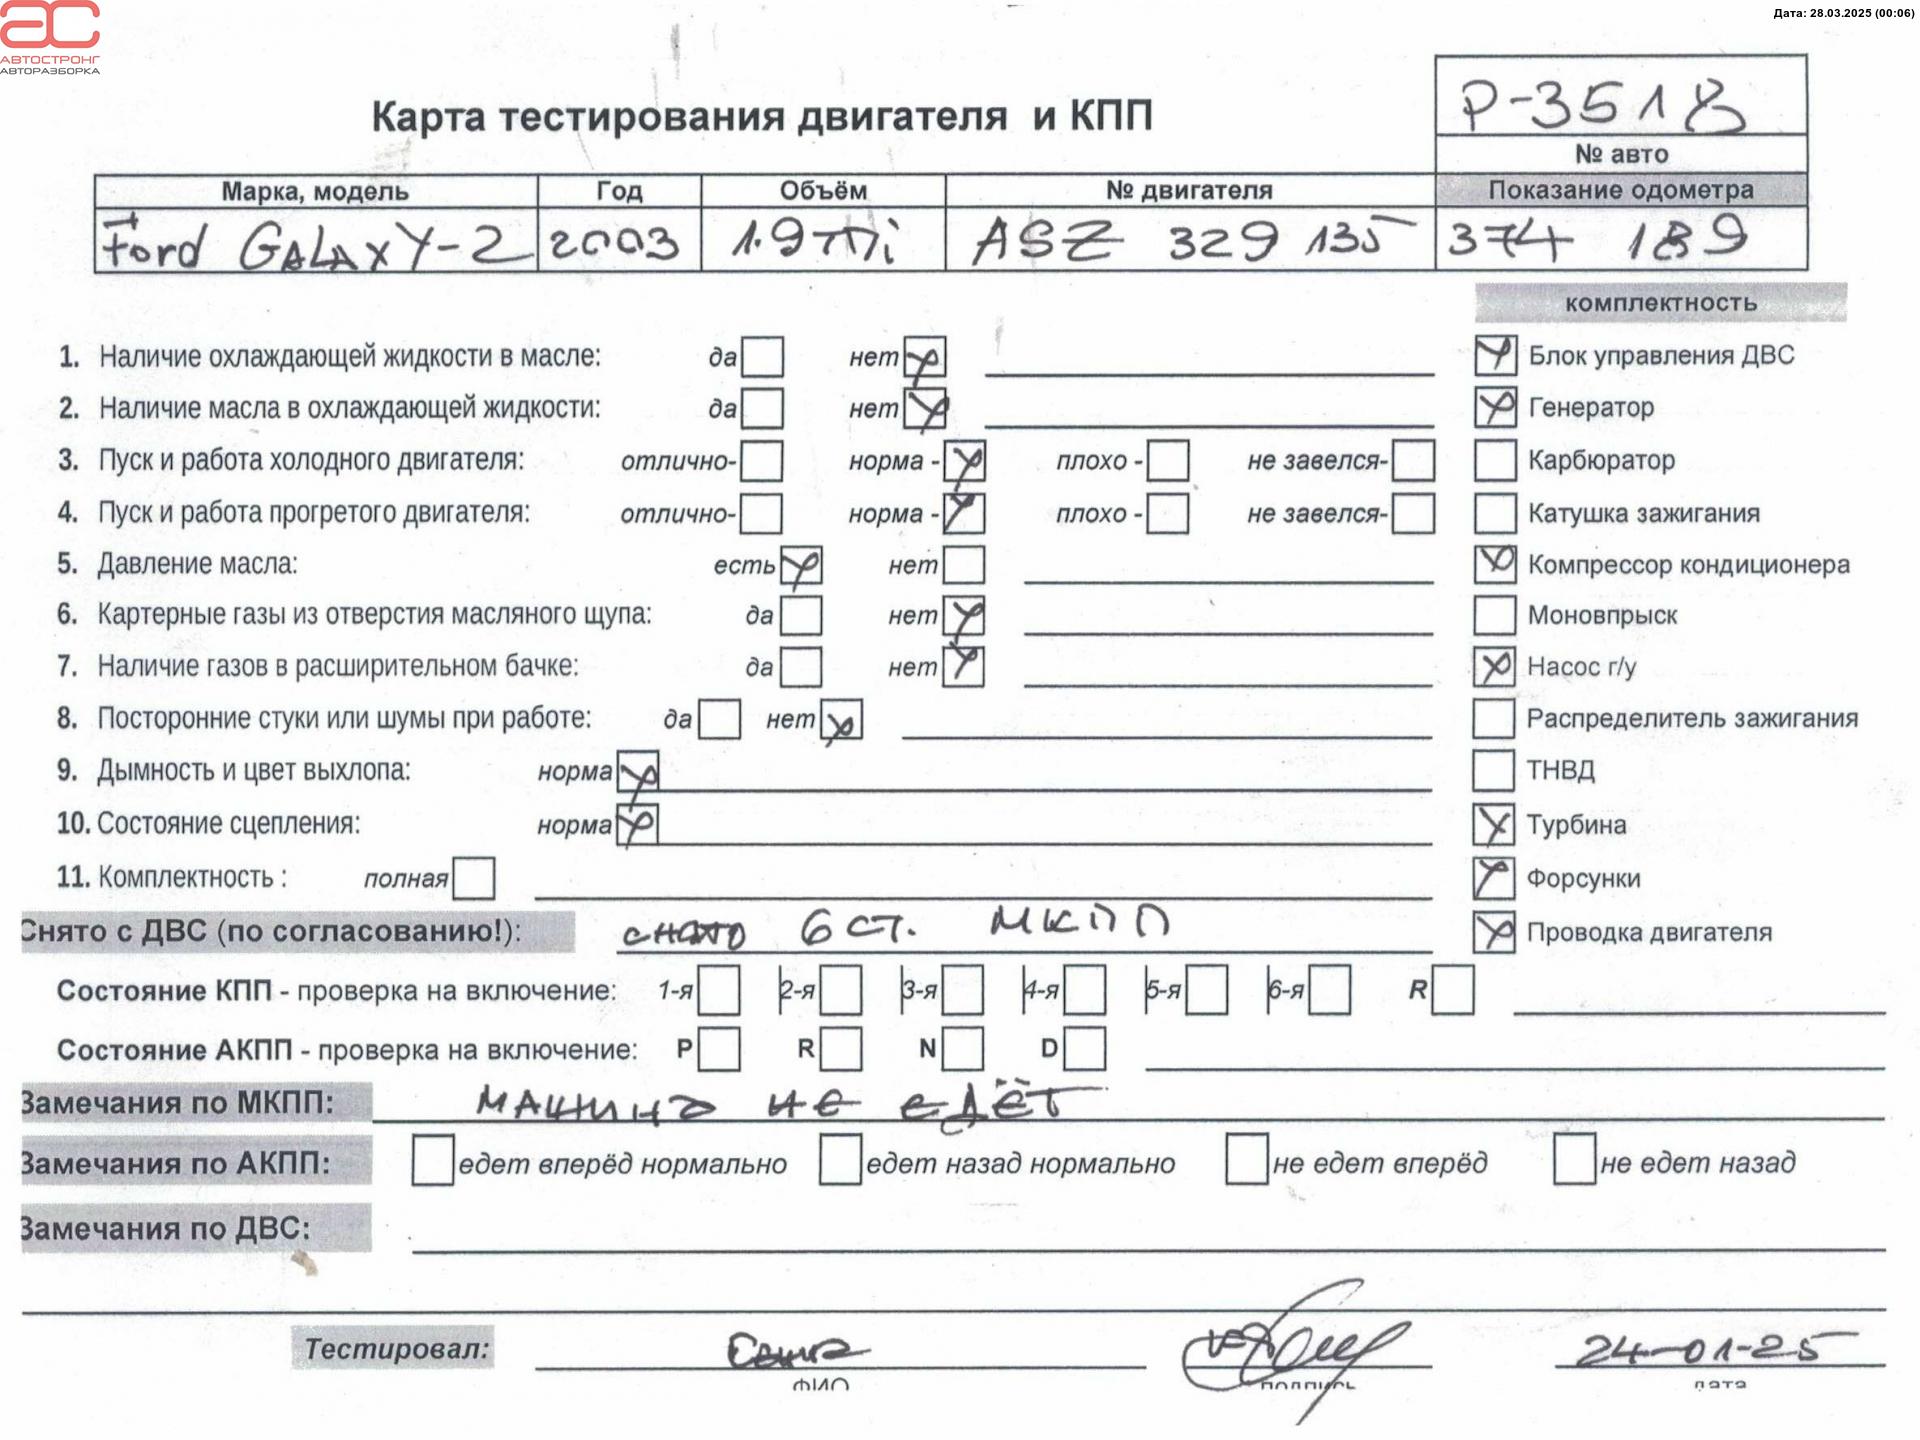 Дата: 28.03.2025 (00:06)
АС
АВТОСТРОНГ
АВТОРАЗБОРКА
Р-3518
Карта тестирования двигателя и КПП
№ авто
Марка, модель Год Объём № двигателя Показание одометра
Ford GALAXY-2 2003 1.9TDi ASZ 329 135 374 189
комплектность
1. Наличие охлаждающей жидкости в масле: да нет Блок управления ДВС
2. Наличие масла в охлаждающей жидкости: да нет Генератор
3. Пуск и работа холодного двигателя: отлично- норма - плохо - не завелся- Карбюратор
4. Пуск и работа прогретого двигателя: отлично- норма - плохо - не завелся- Катушка зажигания
5. Давление масла: есть нет Компрессор кондиционера
6. Картерные газы из отверстия масляного щупа: да нет Моновпрыск
7. Наличие газов в расширительном бачке: да нет Насос г/у
8. Посторонние стуки или шумы при работе: да нет Распределитель зажигания
9. Дымность и цвет выхлопа: норма ТНВД
10. Состояние сцепления: норма Турбина
11. Комплектность : полная Форсунки
Снято с ДВС (по согласованию!): снято 6 ст. МКПП Проводка двигателя
Состояние КПП - проверка на включение: 1-я 2-я 3-я 4-я 5-я 6-я R
Состояние АКПП - проверка на включение: P R N D
Замечания по МКПП: машина не едёт
Замечания по АКПП: едет вперёд нормально едет назад нормально не едет вперёд не едет назад
Замечания по ДВС:
Тестировал: 24-01-25
ФИО подпись дата